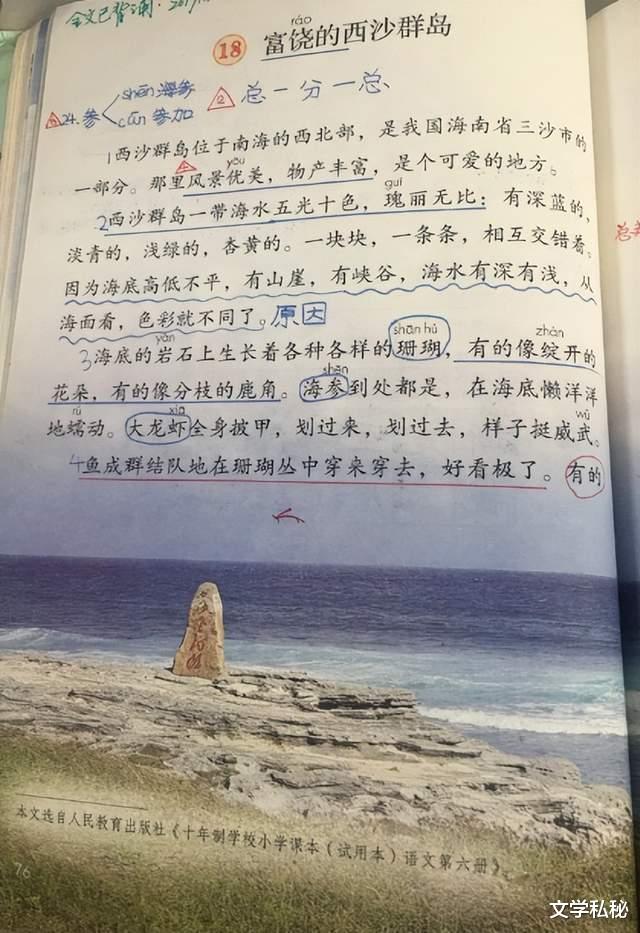 全文已背诵·2019.
ráo
18 富饶的西沙群岛
24.参 shēn 海参
cān 参加
② 总一分一总
1西沙群岛位于南海的西北部，是我国海南省三沙市的
yōu
一部分。那里风景优美，物产丰富，是个可爱的地方。
guī
2西沙群岛一带海水五光十色，瑰丽无比：有深蓝的，
淡青的，浅绿的，杏黄的。一块块，一条条，相互交错着。
因为海底高低不平，有山崖，有峡谷，海水有深有浅，从
海面看，色彩就不同了。原因
yán shān hú zhàn
3海底的岩石上生长着各种各样的珊瑚，有的像绽开的
shēn
花朵，有的像分枝的鹿角。海参到处都是，在海底懒洋洋
rú xiā wǔ
地蠕动。大龙虾全身披甲，划过来，划过去，样子挺威武。
4鱼成群结队地在珊瑚丛中穿来穿去，好看极了。有的
本文选自人民教育出版社《十年制学校小学课本（试用本）语文第六册》。
76
文学私秘